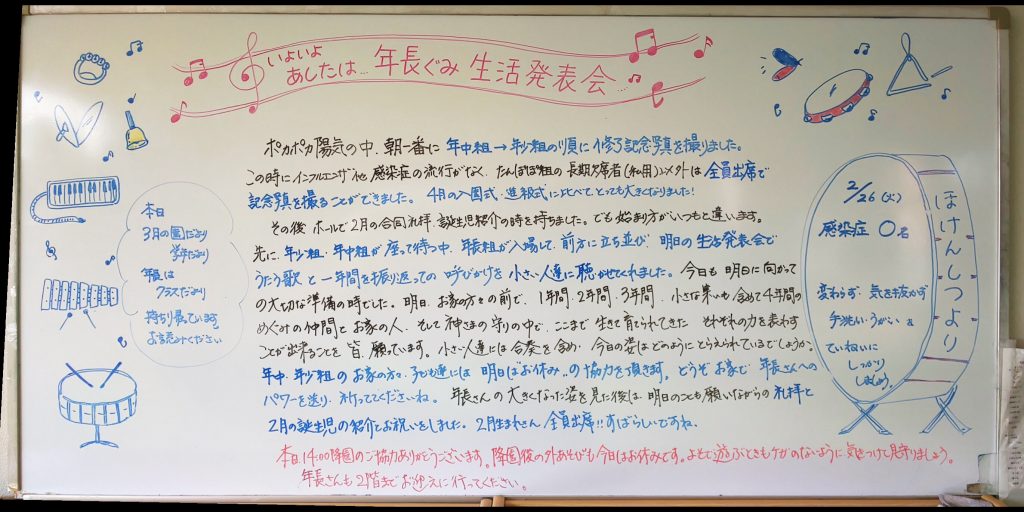 いよいよ
あしたは… 年長ぐみ 生活発表会…
ポカポカ陽気の中、朝一番に 年中組→年少組の順に修了記念写真を撮りました。
この時にインフルエンザ他 感染症の流行がなく、たんぽぽ組の長期欠席者(私用)以外は全員出席で
記念写真を撮ることができました。 4月の入園式・進級式に比べてとっても大きくなりました!
その後 ホールで2月の合同礼拝、誕生児紹介の時を持ちました。でも始まり方がいつもと違います。
先に、年少組、年中組が座って待つ中、年長組が入場して、前方に立ち並び 明日の生活発表会で
うたう歌と一年間を振り返っての呼びかけを小さい人達に聴かせてくれました。今日も明日に向かって
の大切な準備の時でした。明日、お家の方々の前で、1年間、2年間、3年間、小さな集いも含めて4年間の
めぐみの仲間とお家の人、そして神さまの守りの中で、ここまで生きて育てられてきた それぞれの力を表わす
ことが出来ることを皆、願っています。小さい人達には合奏を含め、今日の姿はどのようにとらえられているでしょうか。
年中・年少組のお家の方々、子ども達には 明日はお休み、の協力を頂きます。どうぞお家で 年長さんへの
パワーを送り、祈ってくださいね。 年長さんの大きくなった姿を見た後は、明日のことも願いながらの礼拝と
2月の誕生児の紹介とお祝いをしました。2月生まれさん 全員出席!!すばらしいですね。
本日14:00降園のご協力ありがとうございます。降園後の外あそびも今日はお休みです。よそで遊ぶときもケガのないように気をつけて見守りましょう。
年長さんも2階までお迎えに行ってください。
本日
3月の園だより
学年だより
年長は
クラスだより
持ち帰っています。
お読みください
ほけんしつより
2/26(火)
感染症 0名
変わらず 気を抜かず
手洗い・うがいを
ていねいに
しっかり
しましょう。